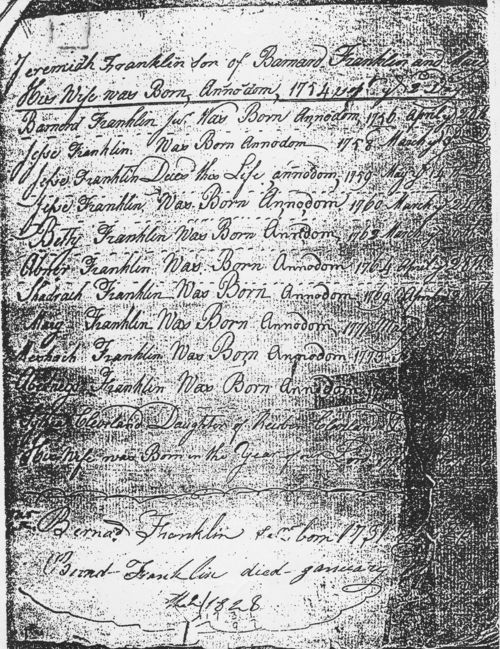 Jeremiah Franklin Son of Barnard Franklin and Mary
His Wife was Born, Annodom, 1754
Barnard Franklin Junr Was Born Annodom, 1756 April ye
Jesse Franklin. Was Born Annodom 1758 March ye 9
Jesse Franklin Deces this Life annodom, 1759 May ye 14
Jesse Franklin. Was. Born Annodom 1760 March ye
Betty Franklin Was Born Annodom, 1762 March
Abner Franklin. Was. Born Annodom 1764 April ye
Shadrach Franklin Was Born Annodom, 1769
Mary Franklin Was Born Annodom,
Meshach Franklin Was Born Annodom
Abednego Franklin Was Born Annodom
Cleveland Daughter of Reuben Cleveland
His Wife was Born in the Year of our Lord
Bernad Franklin Senr born 1731
Bernad Franklin died January
1828